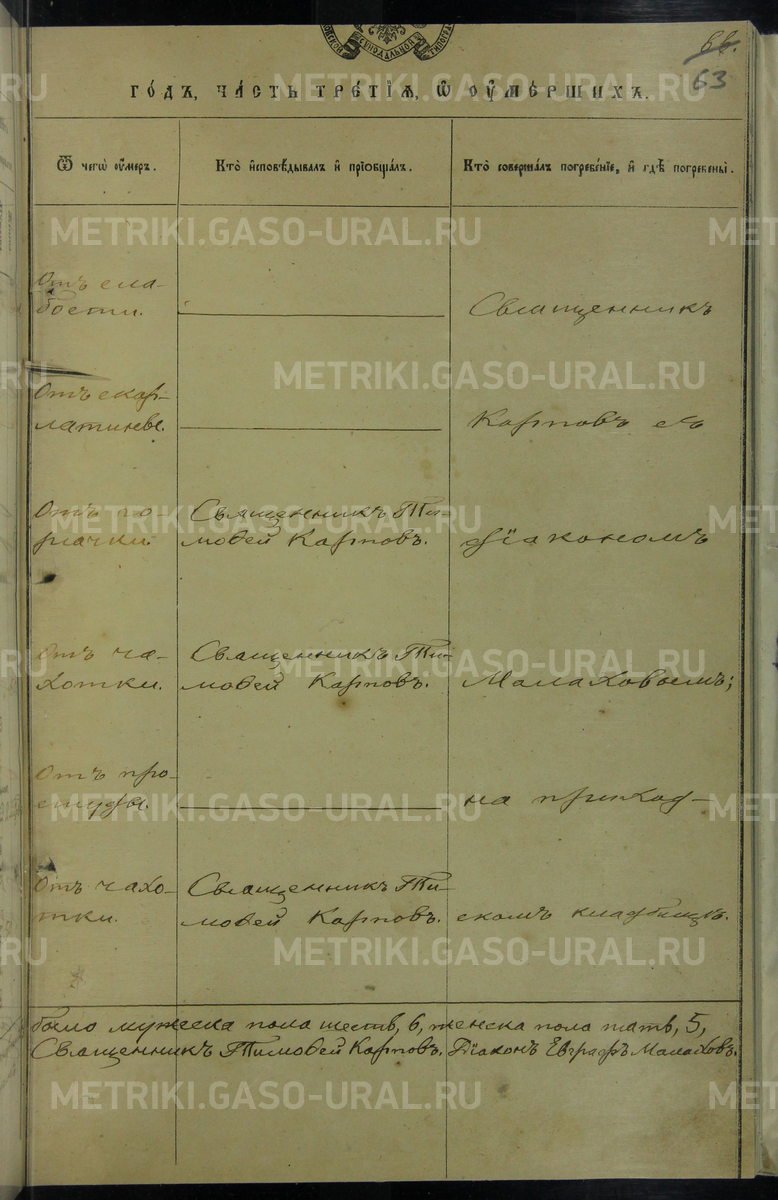 66.
63
ГО́ДЪ, ЧА́СТЬ ТРЕ́ТІѦ, Ѡ҆ ОУ҆МЕ́РШИХЪ.
Ѿ чегѡ̀ оу҆́меръ.
Кто̀ и҆сповѣ́дывалъ и҆ прїѡбща́лъ.
Кто̀ соверша́лъ погребе́нїе, и҆ гдѣ̀ погребены̀.
Отъ сла-
бости.
Священникъ
Отъ скар-
латины.
Карповъ съ
Отъ го-
рячки
Священникъ Ти-
моѳей Карповъ.
діакономъ
Отъ ча-
хотки.
Священникъ Ти-
моѳей Карповъ.
Малаховымъ;
Отъ про-
студы.
на приход-
Отъ чахо-
тки.
Священникъ Ти-
моѳей Карповъ.
скомъ кладбищѣ.
было мужеска пола шесть, 6, женска пола пять, 5,
Священникъ Тимоѳей Карповъ. Діаконъ Евграфъ Малаховъ.
METRIKI.GASO-URAL.RU